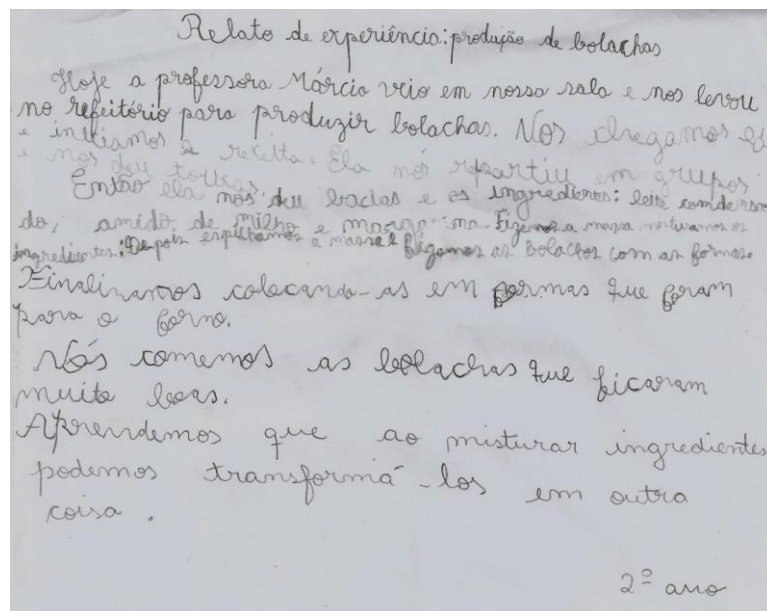 Relato de experiência: produção de bolachas
Hoje a professora Márcia veio em nossa sala e nos levou
no refeitório para produzir bolachas. Nos chegamos
e iniciamos a receita. Ela nos repartiu em grupos
e nos deu toucas.
Então ela nos deu bacias e os ingredientes: leite condensa
do, amido de milho e margarina. Fizemos a massa misturamos os
ingredientes. Depois espichamos a massa e fizemos as bolachas com as formas.
Finalizamos colocando-as em formas que foram
para o forno.
Nós comemos as bolachas que ficaram
muito boas.
Aprendemos que ao misturar ingredientes
podemos transformá-los em outra
coisa.
2º ano